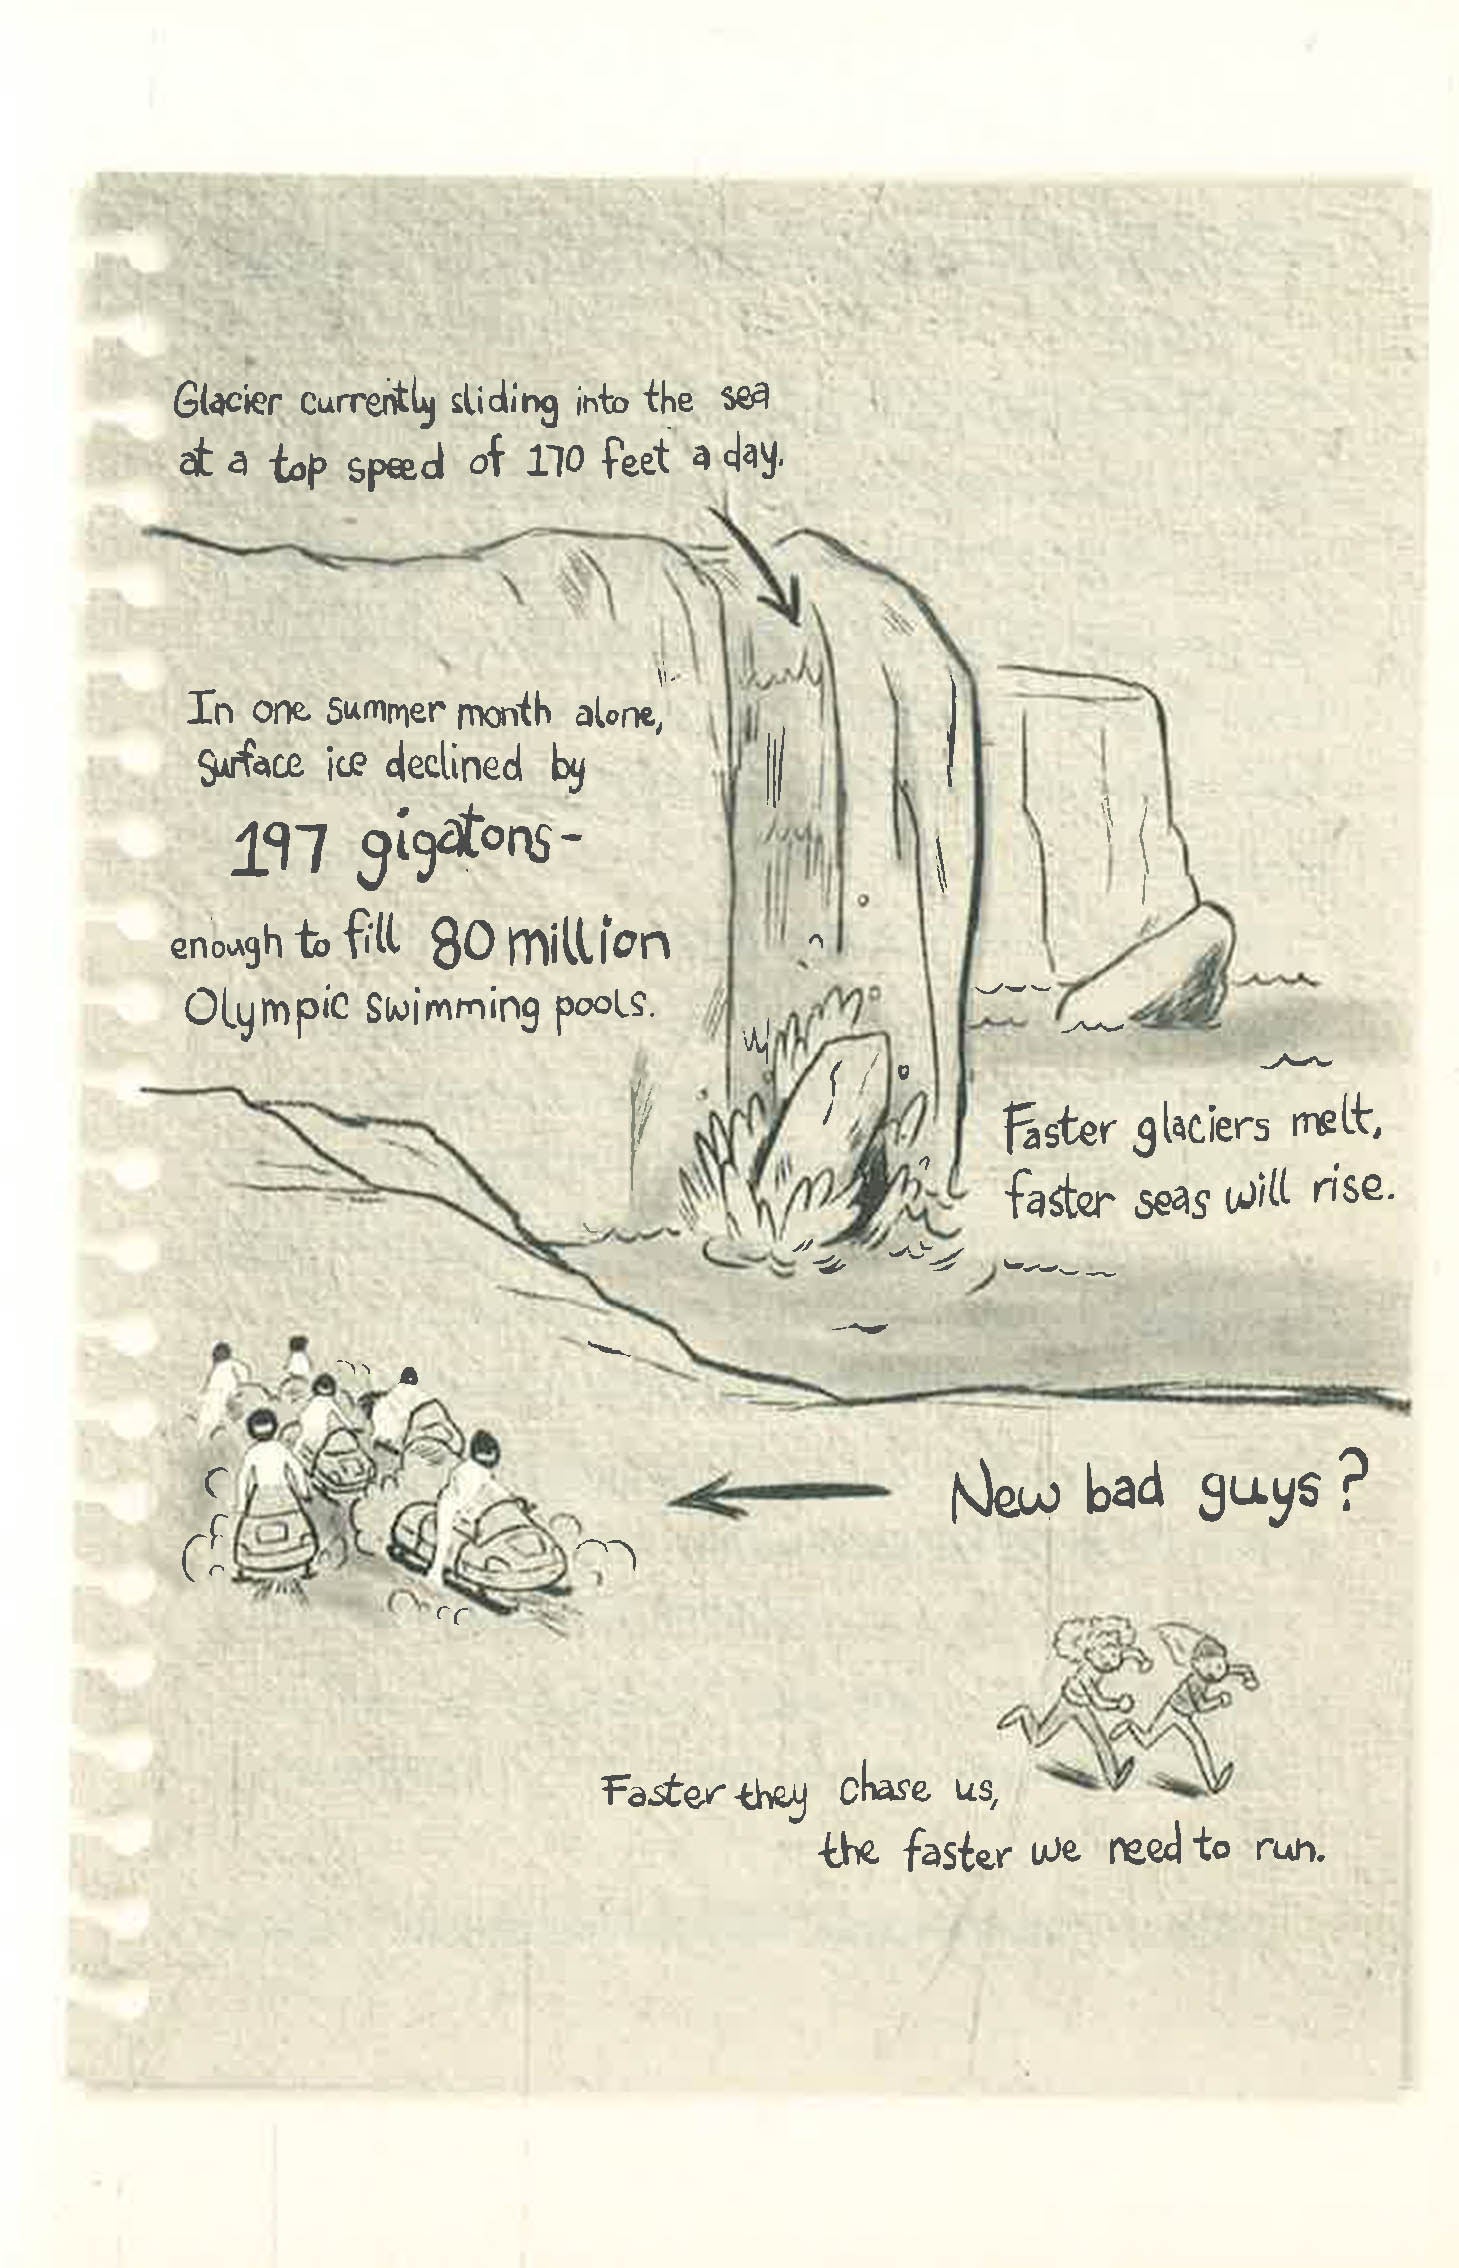 Glacier currently sliding into the sea
at a top speed of 170 feet a day.
In one summer month alone,
surface ice declined by
197 gigatons-
enough to fill 80 million
Olympic swimming pools.
Faster glaciers melt,
faster seas will rise.
New bad guys?
Faster they chase us,
the faster we need to run.